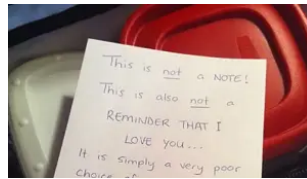 This is not a NOTE!
This is also not a
REMINDER THAT I
LOVE YOU...
It is simply a very poor
choice of